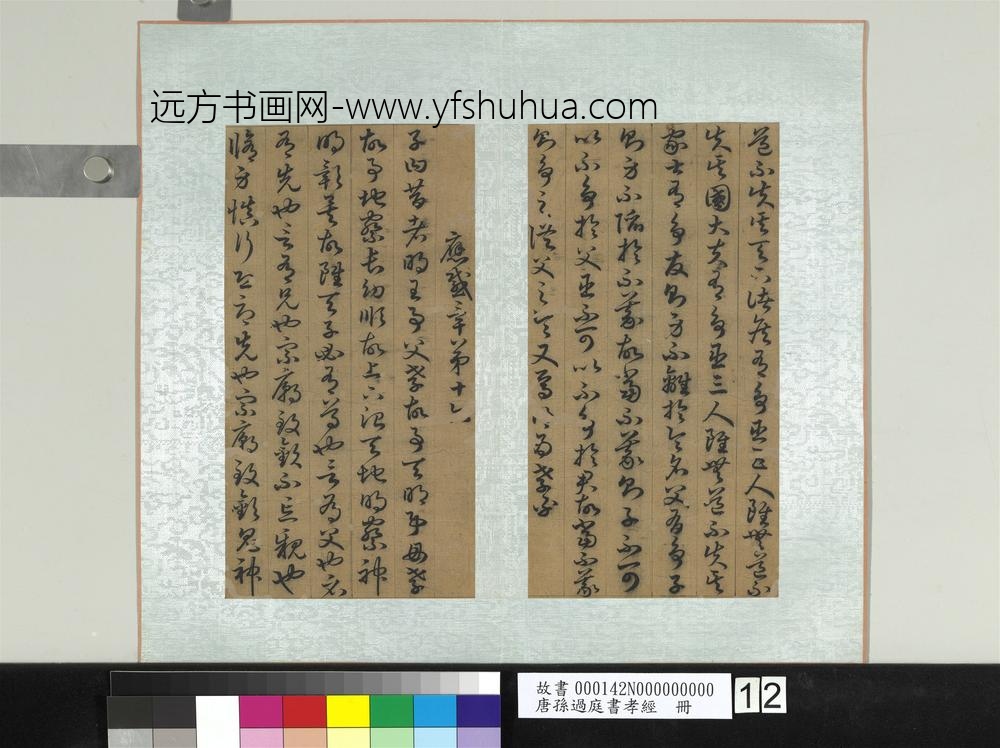 远方书画网-www.yfshuhua.com
道不失其天下諸侯有爭臣五人雖無道不
失其國大夫有爭臣三人雖無道不失其
家士有爭友則身不離於令名父有爭子
則身不陷於不義故當不義則子不可
以不爭於父臣不可以不爭於君故當不義
則爭之從父之令又焉得為孝乎
應感章第十六
子曰昔者明王事父孝故事天明事母孝
故事地察長幼順故上下治天地明察神
明彰矣故雖天子必有尊也言有父也必
有先也言有兄也宗廟致敬不忘親也
脩身慎行恐辱先也宗廟致敬鬼神
故書 000142N000000000
唐孫過庭書孝經 冊
12